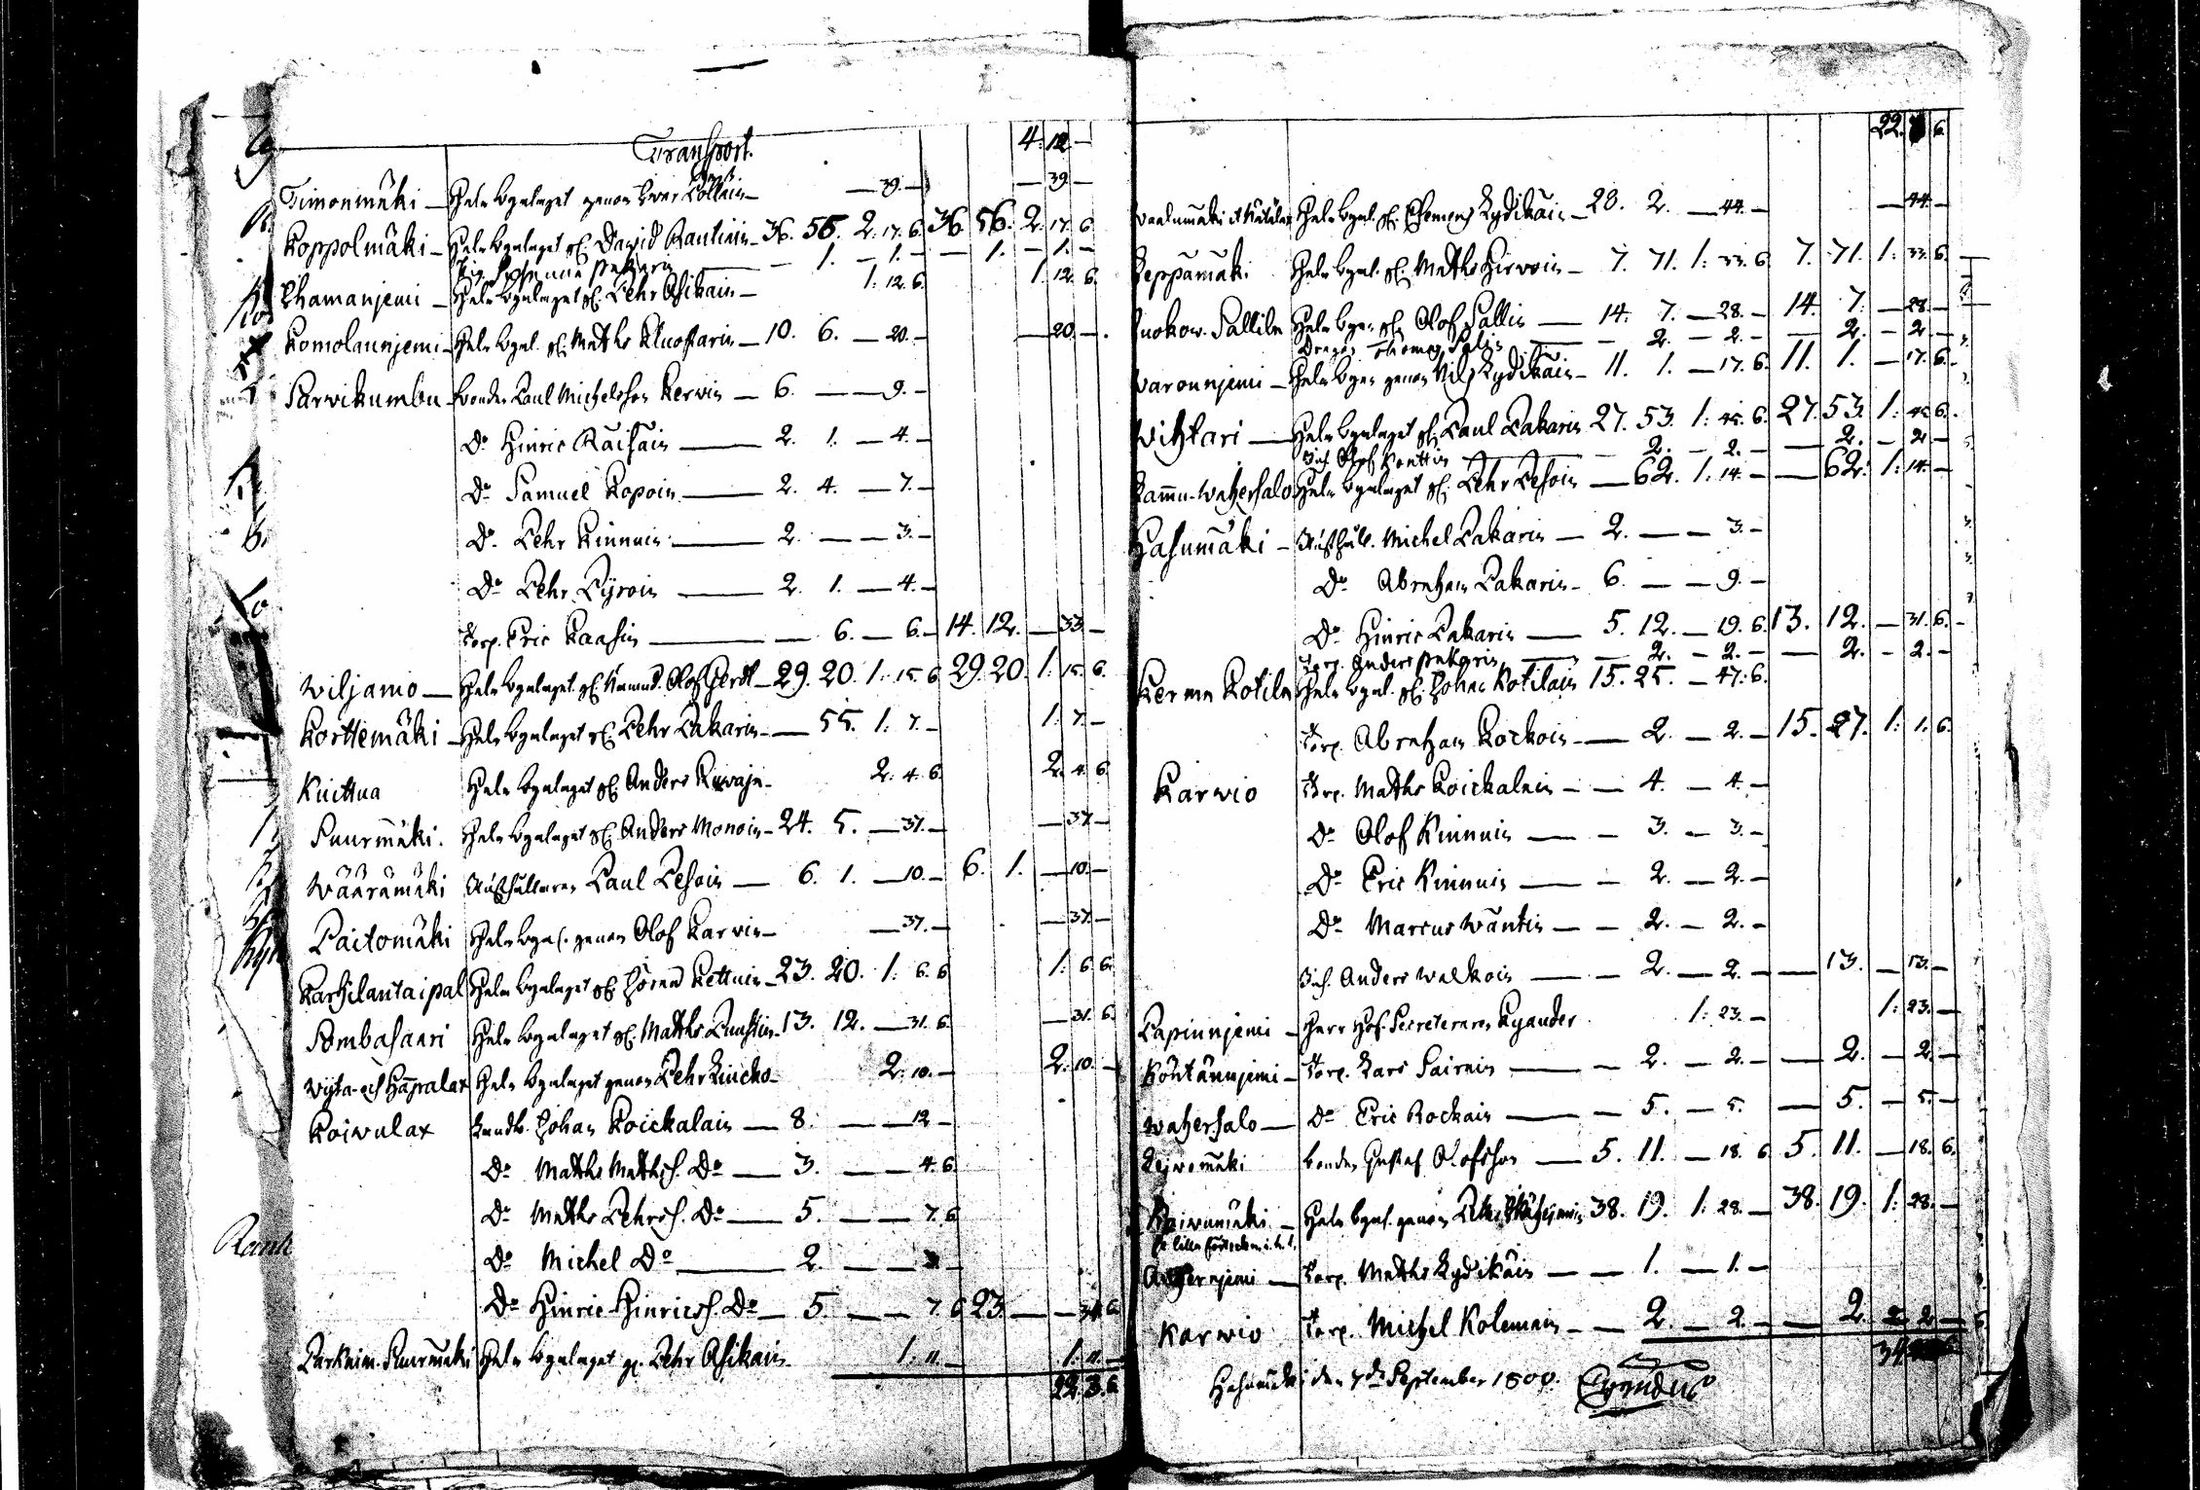 Transport. 4: 12 —
Timonmäki — Hela bolaget genom Ewer Collain — — 39. — — 39 —
Koppolmäki — Hela bolaget gm David Rautiain — 36. 56. 2: 17. 6. 36. 56. 2. 17. 6
— 1. — 1. — — 1. — 1. —
Ehamanjemi — Hela bolaget gm Pehr Asikain — 1: 12. 6. 1: 12. 6.
Komolaunjemi — Hela bol. gm Maths Kluostarin — 10. 6. — 20. — — 20. —
Sarvikumbu — bonden Paul Michelsson Kervin — 6. — — 9. —
Do Hinric Räisäin — 2. 1. — 4. —
Do Samuel Kopoin — 2. 4. — 7. —
Do Pehr Kinnuin — 2. — — 3. —
Do Pehr Pyroin — 2. 1. — 4. —
torp. Eric Kaasin — — 6. — 6. — 14. 12. — 33 —
Wiljamo — Hela bolaget gm Olof Gerdt — 29. 20. 1: 15. 6 29. 20. 1: 15. 6
Korttemäki — Hela bolaget gm Pehr Pakarin — 55. 1: 7. — 1: 7. —
Kuittua Hela bolaget gm Anders Kuvaja — 2: 4. 6. 2. 4. 6
Suurmäki. Hela bolaget gm Anders Monoin — 24. 5. — 37. — — 37. —
Wäärämäki Paul Pesoin — 6. 1. — 10. — 6. 1. — 10. —
Paitomäki Hela bol. genom Olof Karvin — — 37. — — 37. —
Karhilantaipal Hela bolaget gm Göran Kettuin — 23. 20. 1: 6. 6 1: 6. 6.
Sombasaari Hela bolaget gm Maths Puustin — 13. 12. — 31. 6. — 31. 6.
Wihta- och Häpalax Hela bolaget genom Pehr Luicko — 2: 10. — 2: 10. —
Koivulax Landb. Johan Koickalain — 8. — — 12 —
Do Maths Mathss. Do — 3. — — 4. 6.
Do Maths Pehrss. Do — 5. — — 7. 6
Do Michel Do — 2. — — 3 —
Do Hinric Hinricss. Do — 5. — — 7. 6 23. — — 34. 6.
Parknim. Suurmäki Hela bolaget gm Pehr Asikain — 1: 11. — 1: 11 —
22. 3. 6
22. 6
Hela bol. gm Clemens Lydikäin — 28. 2. — 44. — — 44. —
Keppämäki Hela bol. gm Maths Hirvoin — 7. 71. 1: 33. 6. 7. 71. 1: 33. 6.
Hela bol. gm Olof Sallin — 14. 7. — 28. — 14. 7. — 28. —
Dragon Thomas Salin — — 2. — 2. — — 2. — 2. —
Varounjemi — Hela bol. genom Nils Lydikäin — 11. 1. — 17. 6. 11. 1. — 17. 6.
Wihtari — Hela bolaget gm Paul Pakarin 27. 53. 1: 45. 6. 27. 53. 1: 45. 6.
Inh. Olof Konttin — — 2. — 2. — — 2. — 2. —
Hela bolaget gm Pehr Pesoin — 62. 1: 14. — — 62. 1: 14. —
Hasumäki — Michel Pakarin — 2. — — 3. —
Do Abraham Pakarin — 6. — — 9. —
Do Hinric Pakarin — 5. 12. — 19. 6. 13. 12. — 31. 6. —
torp. Anders Pakarin — — 2. — 2. — — 2. — 2. —
Kerma Kotila Hela bol. gm Johan Kotilain 15. 25. — 47: 6.
torp. Abraham Kockoin — 2. — 2. — 15. 27. 1: 1. 6.
Karvio torp. Maths Koickalain — — 4. — 4. —
Do Olof Kinnuin — — 3. — 3. —
Do Eric Kinnuin — — 2. — 2. —
Do Marcus Wäntin — — 2. — 2. —
Inh. Anders Walkoin — — 2. — 2. — — 13. — 13. —
Papinnjemi — Herr Hof Secreteraren Kyander 1: 23. — 1: 23. —
Köntännjemi — torp. Lars Sairain — — 2. — 2. — — 2. — 2. —
Wahersalo — Do Eric Rockain — — 5. — 5. — 5. — 5. —
Leivomäki bonden Gustaf Olofsson — 5. 11. — 18. 6. 5. 11. — 18. 6.
Koivumäki — Hela bol. genom 38. 19. 1: 28. — 38. 19. 1: 28. —
torp. Maths Lydikäin — — 1. — 1. —
Karvio torp. Michel Kolemain — — 2. — 2. — — 2. 2 2. —
Hasumäki den 7de September 1800.